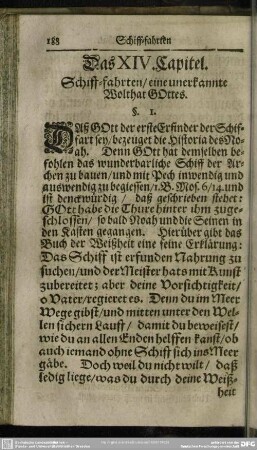 188 Schiff-fahrten
Das XIV. Capitel.
Schiff-fahrten/eine unerkannte
Wolthat GOttes.
§. 1.
DAß GOtt der erste Erfinder der Schif-
fart sey/bezeuget die Historia des No-
ah. Denn GOtt hat demselben be-
fohlen das wunderbarliche Schiff der Ar-
chen zu bauen/und mit Pech inwendig und
auswendig zu begiessen/1.B.Mos. 6/14. und
ist denckwürdig / daß geschrieben stehet:
GOtt habe die Thüre hinter ihm zuge-
schlossen/ so bald Noah und die Seinen in
den Kasten gegangen. Hierüber gibt das
Buch der Weißheit eine feine Erklärung:
Das Schiff ist erfunden Nahrung zu
suchen/und der Meister hats mit Kunst
zubereitet; aber deine Vorsichtigkeit/
o Vater/regieret es. Denn du im Meer
Wege gibst/und mitten unter den Wel-
len sichern Lauff/ damit du beweisest/
wie du an allen Enden helffen kanst/ob
auch iemand ohne Schiff sich ins Meer
gäbe. Doch weil du nicht wilt/ daß
ledig liege/was du durch deine Weiß-
heit